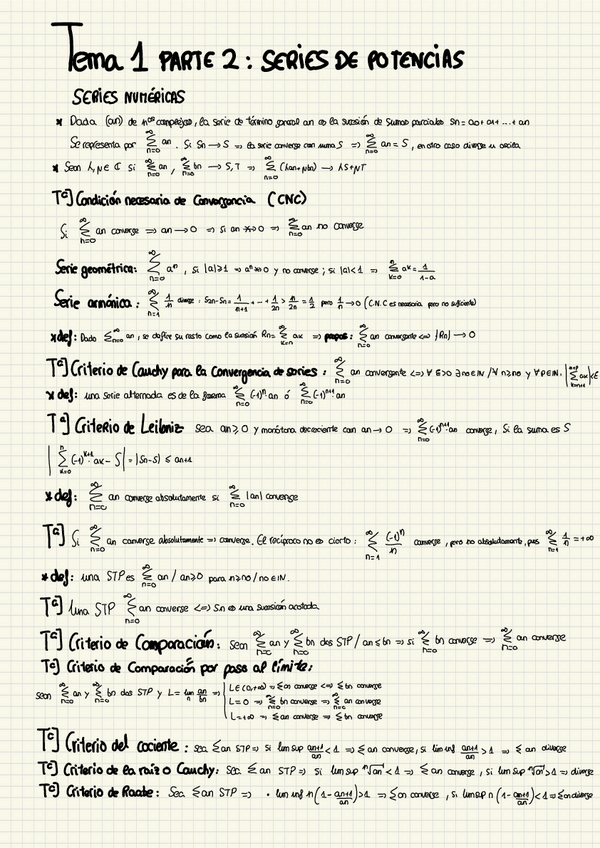 Tema 1 PARTE 2: SERIES DE POTENCIAS
SERIES NUMÉRICAS
* Dada (an) de nºs complejos, la serie de término general an es la sucesión de sumas parciales Sn = a0 + a1 + ... + an
Se representa por ∑_{n=0}^{∞} an. Si Sn → S => la serie converge con suma S => ∑_{n=0}^{∞} an = S, en otro caso diverge u oscila.
* Sean λ, μ ∈ ℂ si ∑_{n=0}^{∞} an, ∑_{n=0}^{∞} bn → S, T => ∑_{n=0}^{∞} (λan + μbn) → λS + μT
Tª] Condición necesaria de Convergencia (CNC)
Si ∑_{n=0}^{∞} an converge => an → 0 => si an ↛ 0 => ∑_{n=0}^{∞} an no converge
Serie geométrica: ∑_{n=0}^{∞} aⁿ, si |a| ≥ 1 => aⁿ ↛ 0 y no converge; si |a| < 1 => ∑_{k=0}^{∞} aᵏ = 1/(1-a)
Serie armónica: ∑_{n=1}^{∞} 1/n diverge: S2n - Sn = 1/(n+1) + ... + 1/2n > n/2n = 1/2 pero 1/n → 0 (C.N.C es necesaria pero no suficiente)
* def: Dado ∑_{n=0}^{∞} an, se define su resto como la sucesión Rn = ∑_{k=n}^{∞} ak => propos: ∑_{n=0}^{∞} an convergente <=> |Rn| → 0
Tª] Criterio de Cauchy para la Convergencia de series: ∑_{n=0}^{∞} an convergente <=> ∀ ε>0 ∃ n0 ∈ IN / ∀ n ≥ n0 y ∀ p ∈ IN. |∑_{k=n+1}^{n+p} ak| < ε
* def: una serie alternada es de la forma ∑_{n=0}^{∞} (-1)ⁿ an ó ∑_{n=0}^{∞} (-1)ⁿ⁺¹ an
Tª] Criterio de Leibniz sea an ≥ 0 y monótona decreciente con an → 0 => ∑_{n=0}^{∞} (-1)ⁿ⁺¹ an converge, Si la suma es S
|∑_{k=0}^{n} (-1)ᵏ⁺¹ · ak - S| = |Sn - S| ≤ an+1
* def: ∑_{n=0}^{∞} an converge absolutamente si ∑_{n=0}^{∞} |an| converge
Tª] Si ∑_{n=0}^{∞} an converge absolutamente => converge. El recíproco no es cierto: ∑_{n=1}^{∞} (-1)ⁿ/n converge, pero no absolutamente, pues ∑_{n=1}^{∞} 1/n = +∞
* def: una STP es ∑_{n=0}^{∞} an / an ≥ 0 para n ≥ n0 / n0 ∈ IN.
Tª] Una STP ∑_{n=0}^{∞} an converge <=> Sn es una sucesión acotada.
Tª] Criterio de Comparación: Sean ∑_{n=0}^{∞} an y ∑_{n=0}^{∞} bn dos STP / an ≤ bn => si ∑_{n=0}^{∞} bn converge => ∑_{n=0}^{∞} an converge
Tª] Criterio de Comparación por paso al límite:
sean ∑_{n=0}^{∞} an y ∑_{n=0}^{∞} bn dos STP y L = lim_{n} an/bn =>
L ∈ (0, +∞) => ∑ an converge <=> ∑ bn converge
L = 0 => ∑_{n=0}^{∞} bn converge => ∑_{n=0}^{∞} an converge
L = +∞ => ∑ an converge => ∑ bn converge
Tª] Criterio del cociente: sea ∑ an STP => si lim sup an+1/an < 1 => ∑ an converge, si lim inf an+1/an > 1 => ∑ an diverge
Tª] Criterio de la raíz o Cauchy: Sea ∑ an STP => si lim sup ⁿ√an < 1 => ∑ an converge, si lim sup ⁿ√an > 1 => diverge
Tª] Criterio de Raabe: Sea ∑ an STP => · lim inf n(1 - an+1/an) > 1 => ∑ an converge, si lim sup n(1 - an+1/an) < 1 => ∑ an diverge